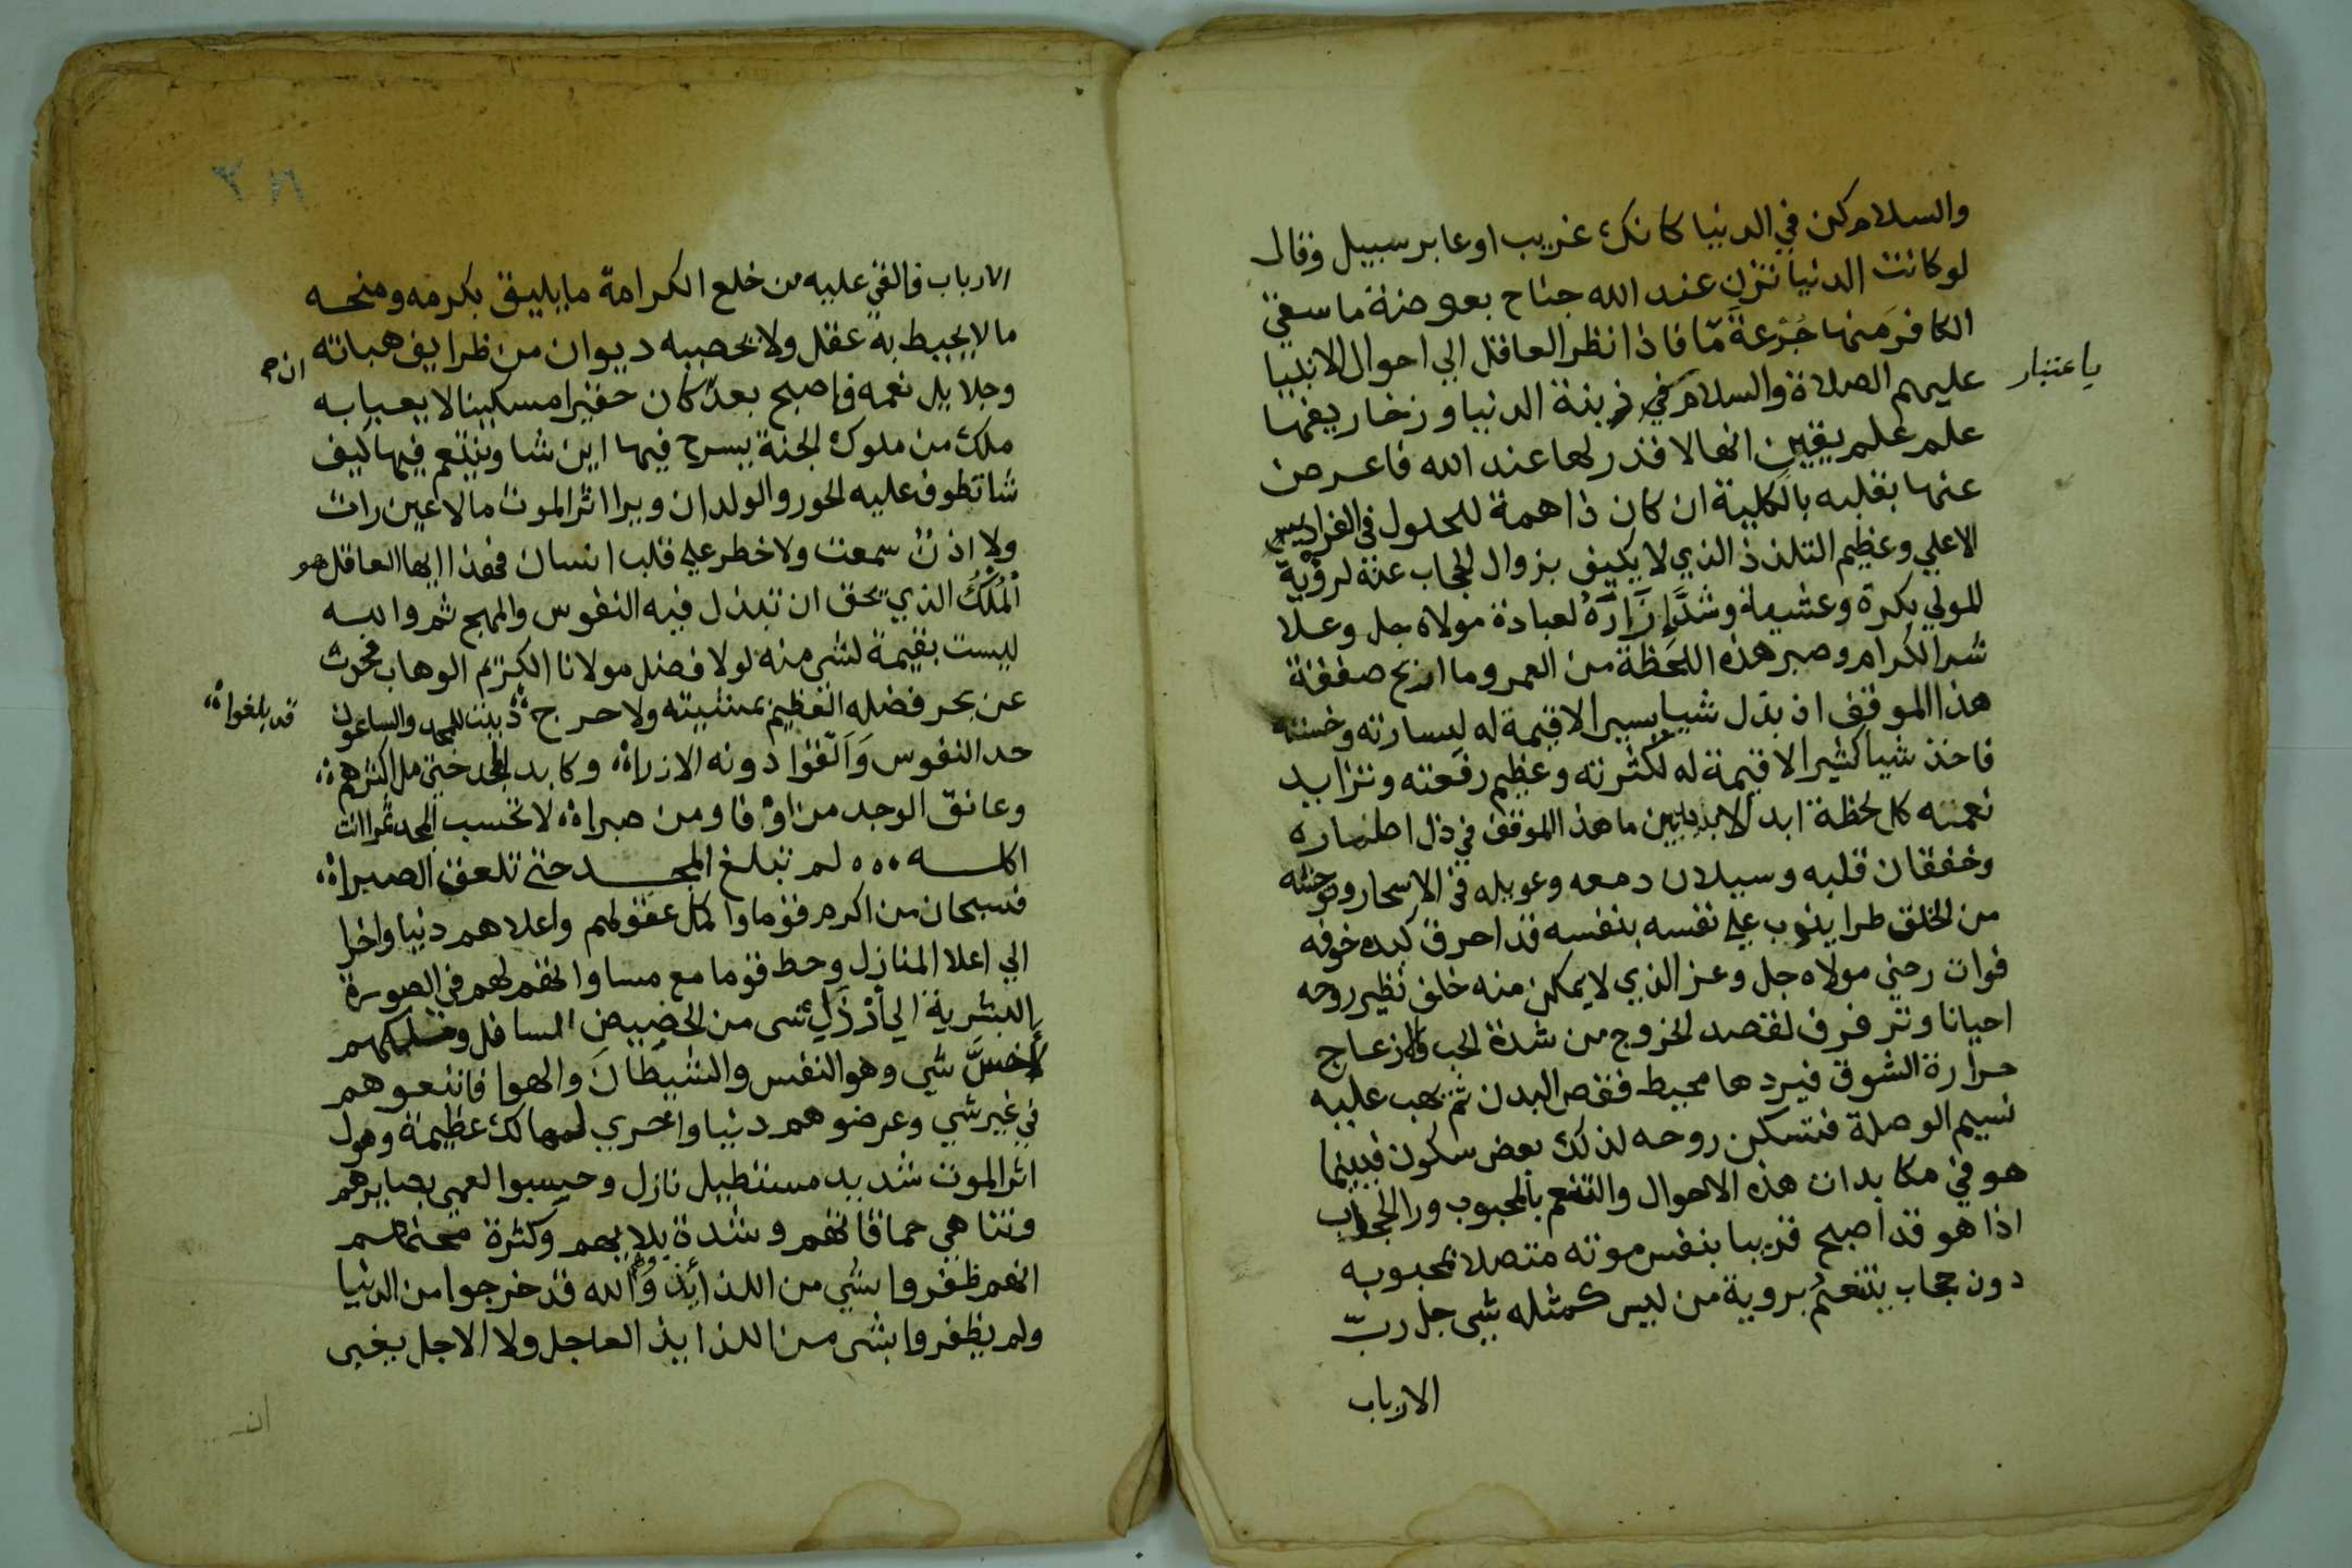 والسلام كن في الدنيا كانك غريب او عابر سبيل وقال
لو كانت الدنيا تزن عند الله جناح بعوضة ما سقي
الكافر منها جُرْعَةَ مّا فاذا نظر العاقل الي احوال الانبيا
باعتبار
عليهم الصلاة والسلام في زينة الدنيا وزخاريفها
علم علم يقين انها لا قدر لها عند الله فاعرض
عنها بقلبه بالكلية ان كان ذا همة للحلول في الفراديس
الاعلي وعظيم التلذذ الذي لا يكيف بزوال الحجاب عنه لرؤية
المولي بكرة وعشية وشدَّ إزاره لعبادة مولاه جل وعلا
شد الكرام وصبر هذه اللحظة من العمر وما اربح صفقة
هذا الموفق اذ بذل شيا يسيرا لا قيمة له ليسارته وخسته
فاخذ شيا كثيرا لا قيمة له لكثرته وعظيم رفعته وتزايد
نعمته كل لحظة ابد الابديين ما هذا الموفق في ذل اطماره
وخفقان قلبه وسيلان دمعه وعويله في الاسحار وتوحشه
من الخلق طرا ينوب علي نفسه بنفسه قد احرق كبده خوفه
فوات رضي مولاه جل وعز الذي لا يمكن منه خلف تطير روحه
احيانا وترفرف لقصد الخروج من شدة الحب والازعاج
حرارة الشوق فيردها محيط قفص البدن ثم يهب عليه
نسيم الوصلة فتسكن روحه لذلك بعض سكون فبينما
هو في مكابدات هذه الاحوال والتنعم بالمحبوب ورا الحجاب
اذا هو قد اصبح قريبا بنفس موته متصلا بمحبوبه
دون حجاب يتنعم بروية من ليس كمثله شي جل ربّ
الارباب
الارباب فالقي عليه من خلع الكرامة ما يليق بكرمه ومنحه
ما لا يحيط به عقل ولا يحصيه ديوان من ظرايف هباته
وجلايل نعمه فاصبح بعد كان حقيرا مسكينا لا يعبا به
ملك من ملوك الجنة يسرح فيها اين شا ويتنعم فيها كيف
شا تطوف عليه الحور والولدان ويرا اثر الموت ما لا عين رات
ولا اذن سمعت ولا خطر علي قلب انسان فهذا ايها العاقل هو
الْمُلْكُ الذي يحق ان تبذل فيه النفوس والمهج ثم والله
ليست بقيمة لشي منه لولا فضل مولانا الكريم الوهاب فحدث
عن بحر فضله العظيم بمنتهيته ولا حرج دنيت للمجد والساعون
قد بلغوا
حد النفوس وَالقوا دونه الازرا وكابد المجد حتي مل اكثرهم
وعانق الوجد من اوفا ومن صبرا لا تحسب المجد تمرا انت
اكله لم تبلغ المجد حتي تلعق الصبرا
فسبحان من اكرم قوما واكمل عقولهم واعلاهم دنيا واخرا
الي اعلا المنازل وحط قوما مع مساواتهم لهم في الصورة
البشرية الي أرْذَلِ شي من الحضيض السافل وملكهم
لأخسَّ شي وهو النفس والشيطان والهوا فاتبعوهم
في غير شي وعرضوهم دنيا واخري لمهالك عظيمة وهول
اثر الموت شديد مستطيل نازل وحسبوا لعمي بصايرهم
وتناهي حماقاتهم وشدة بلايهم وكثرة محنهم
انهم ظفروا بشي من اللذايذ وَالله قد خرجوا من الدنيا
ولم يظفروا بشي من اللذايذ العاجل ولا الاجل بغيي